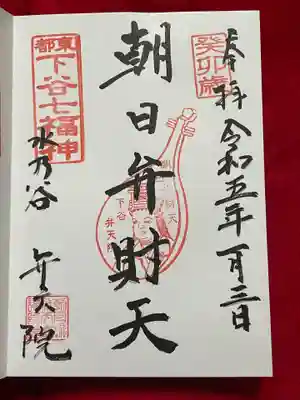 癸卯歳
奉拝 令和五年一月三日
朝日弁財天
下谷
弁天院
東都
下谷七福神
水乃谷 弁天院